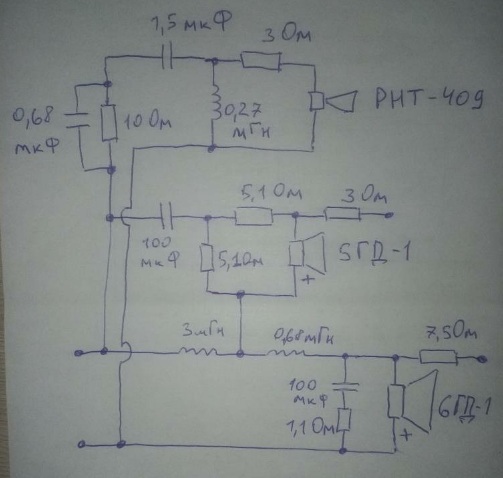 1,5 мкФ
3 Ом
0,68
мкФ
10 Ом
0,27
мГн
РНТ-409
5,1 Ом
3 Ом
100
мкФ
5,1 Ом
5ГД-1
+
3 мГн
0,68 мГн
7,5 Ом
100
мкФ
1,1 Ом
6ГД-1
+